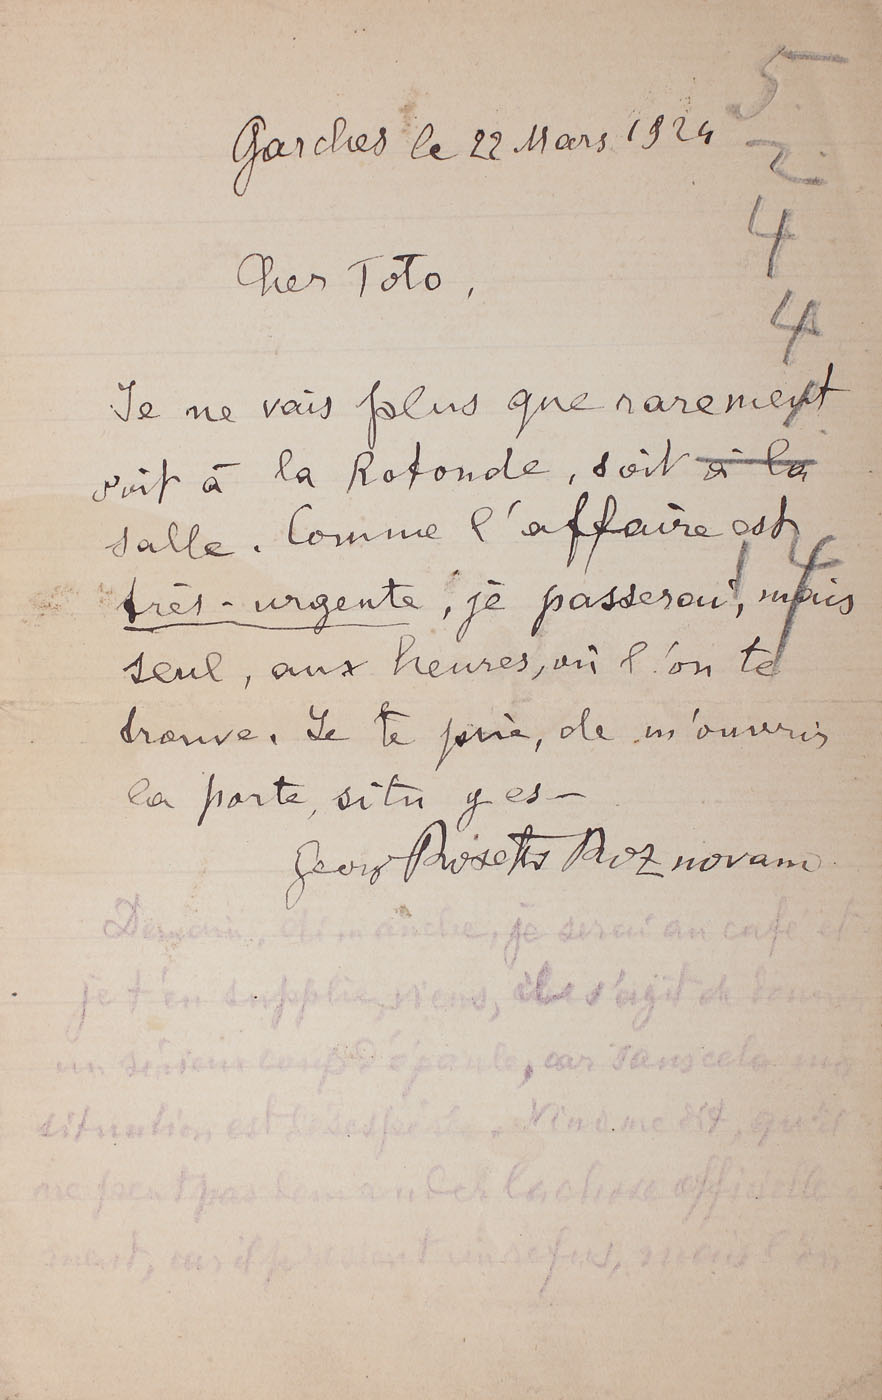 5
2
4
4
Garches le 22 Mars 1924
Cher Toto,
Je ne vais plus que rarement
soit à la Rotonde, soit à la
salle. Comme l'affaire est
très-urgente, je passerai, mais
seul, aux heures, où l'on te
trouve. Je te prie, de m'ouvrir
la porte, situ y es-
Georg Rosetti Roznovanu
14
Demain, dimanche, je serai au café et
je t'en supplie, viens, il s'agit de donner
un sérieux coup d'épaule, car sans cela ma
situation est désespérée. Nino me dit, qu'il
ne peut pas demander la chose officielle-
ment, car il pressent un refus, mais l'on